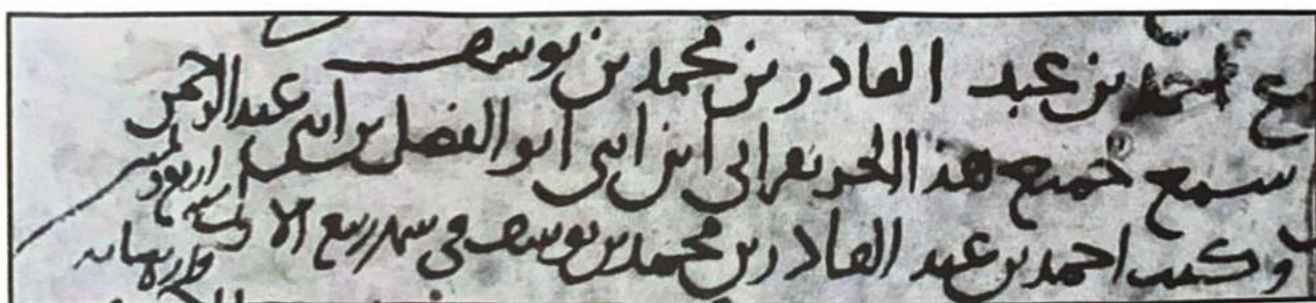 ع احمد بن عبد القادر بن محمد بن يوسف
سمع جميع هذا الجزو بقراتي ابن ابني ابو الفضل بن ابي عبد الرحمن
وكتب احمد بن عبد القادر بن محمد بن يوسف في شهر ربيع الاول سنه اربع
واربعمايه